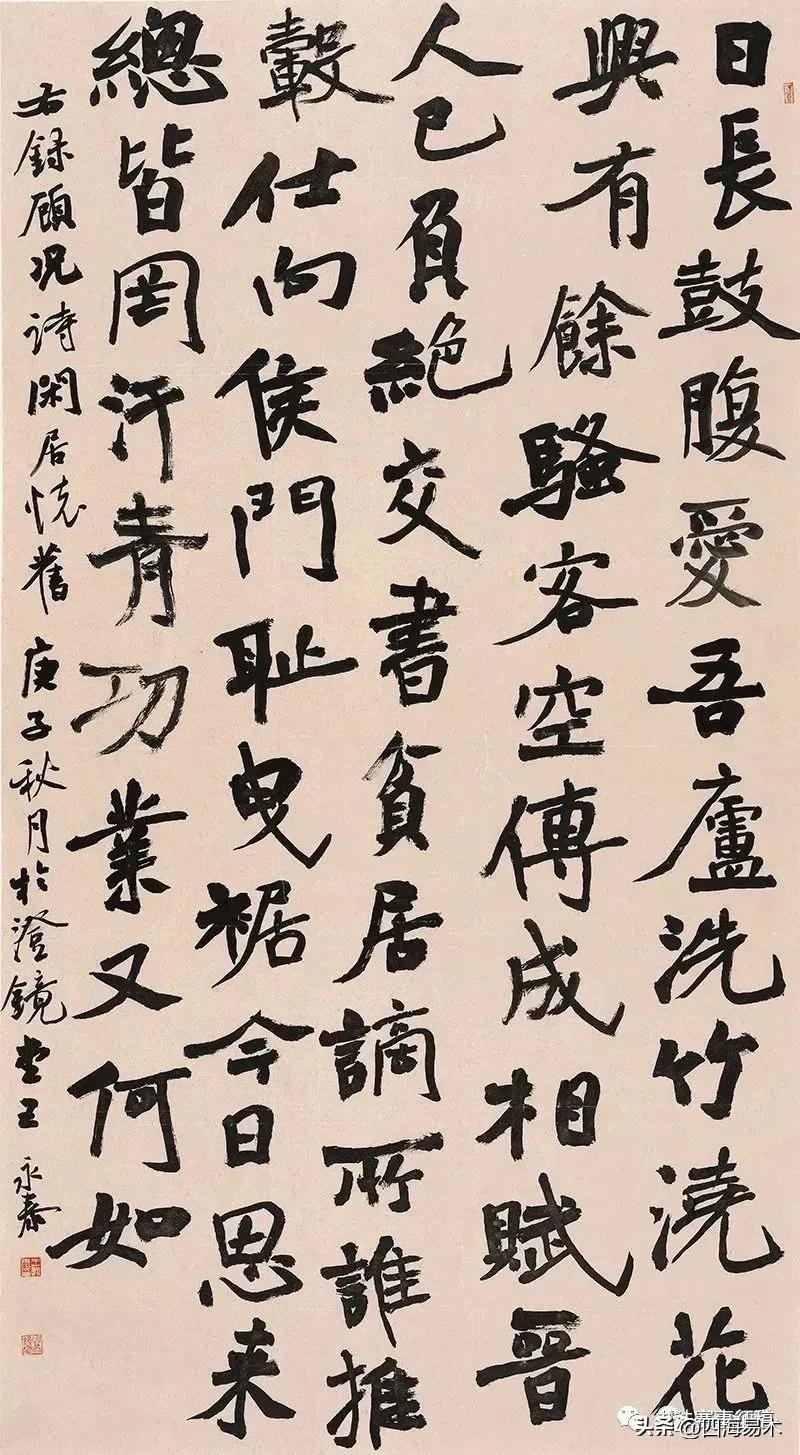 日長鼓腹愛吾廬洗竹澆花
興有餘騷客空傳成相賦晉
人已負絕交書貧居謫所誰推
轂仕向侯門恥曳裾今日思来
總皆罔汗青功業又何如
右録顧况詩閑居怀舊 庚子秋月於澄鏡堂王永泰
头条@四海易木